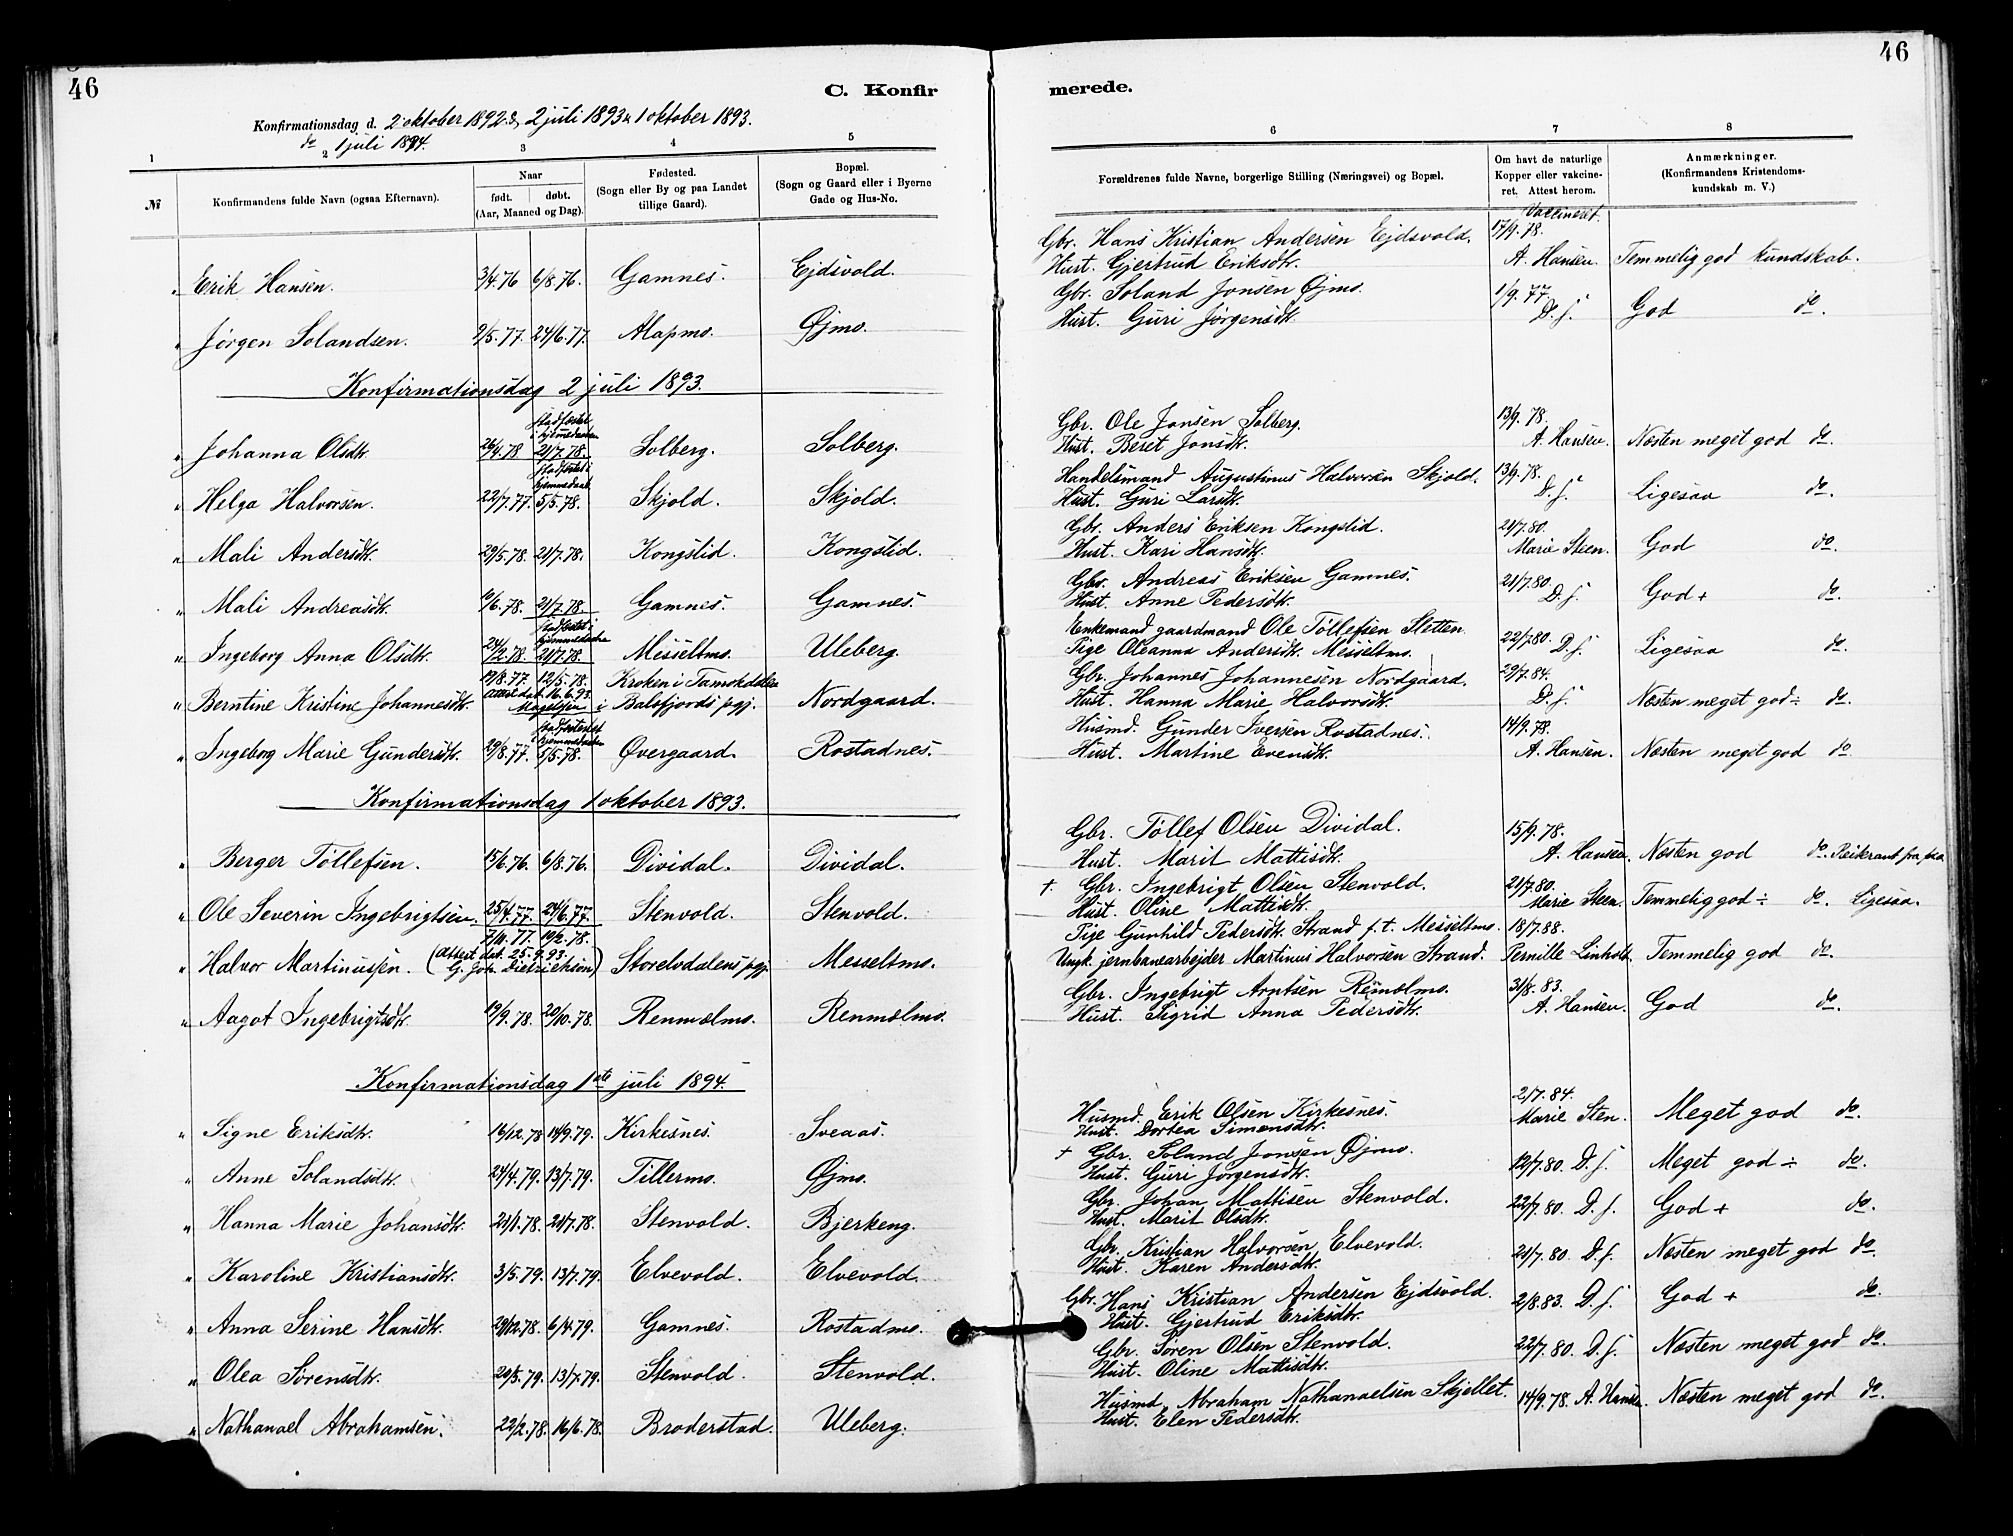 46
46
C. Konfir
merede.
Konfirmationsdag d. 2 oktober 1892 & 2 juli 1893 & 1 oktober 1893.
do 1 juli 1894.
1
2
3
4
5
6
7
8
№
Konfirmandens fulde Navn (ogsaa Efternavn).
Naar
født.
døbt.
(Aar, Maaned og Dag).
Fødested.
(Sogn eller By og paa Landet
tillige Gaard).
Bopæl.
(Sogn og Gaard eller i Byerne
Gade og Hus-No.
Forældrenes fulde Navne, borgerlige Stilling (Næringsvei) og Bopæl.
Om havt de naturlige
Kopper eller vakcine-
ret. Attest herom.
Anmærkninger.
(Konfirmandens Kristendoms-
kundskab m. V.)
Vaccineret.
Gbr. Hans Kristian Andersen Ejdsvold. 17/9.78.
" Erik Hansen. 3/4.76 6/8.76. Gamnes. Ejdsvold. Hust. Gjertrud Eriksdtr. A. Hansen. Temmelig god kundskab.
Gbr. Soland Jonsen Øjmo. 1/9.77.
" Jørgen Solandsen. 2/5.77. 24/6.77. Alapmo. Øjmo. Hust. Guri Jørgensdtr. D. s. God do.
Konfirmationsdag 2 juli 1893.
stadfæstet
i hjemmedaaben
Gbr. Ole Jonsen Solberg. 13/9.78.
" Johanna Olsdtr. 26/4.78 21/7.78. Solberg. Solberg. Hust. Beret Jonsdtr. A. Hansen. Næsten meget god do.
stadfæstet i
hjemmedaab
Handelsmand Augustinus Halvorsen Skjold. 13/9.78.
" Helga Halvorsen. 22/7.77. 5/5.78. Skjold. Skjold. Hust. Guri Larsdtr. D. s. Ligesaa do.
Gbr. Anders Eriksen Kongslid. 21/7.80.
" Mali Andersdtr. 29/5.78. 21/7.78. Kongslid. Kongslid. Hust. Kari Hansdtr. Marie Steen. God do.
Gbr. Andreas Eriksen Gamnes. 21/7.80.
" Mali Andreasdtr. /6.78. 21/7.78. Gamnes. Gamnes. Hust. Anne Pedersdtr. D. s. God + do.
stadfæstet i
hjemmedaaben
Enkemand gaardmand Ole Tøllefsen Sletten
" Ingeborg Anna Olsdtr. 24/2.78. 21/7.78. Messeltmo. Uleberg. Pige Oleanna Andersdtr. Messeltmo. 22/7.80. D. s. Ligesaa do.
19/8.77. 12/5.78. Kroken i Tamokdalen Gbr. Johannes Johannesen Nordgaard. 29/7.84.
" Berntine Kristine Johannesdtr. Attest dat. 16.6.93. i Balsfjords pgj. Nordgaard. Hust. Hanna Marie Halvorsdtr. D. s. Næsten meget god ÷ do.
stadfæstet
hjemmedaaben
Husmd. Gunder Iversen Rostadnes. 14/9.78.
" Ingeborg Marie Gundersdtr. 29/8.77. 5/5.78. Øvergaard. Rostadnes. Hust. Martine Evensdtr. A. Hansen. Næsten meget god do.
Konfirmationsdag 1 oktober 1893.
Gbr. Tøllef Olsen Dividal. 15/9.78.
" Berger Tøllefsen. 15/6.76. 6/8.76. Dividal. Dividal. Hust. Marit Mattisdtr. A. Hansen. Næsten god do.
† Gbr. Ingebrigt Olsen Stenvold. 21/7.80.
" Ole Severin Ingebrigtsen. 25/4.77. 24/6.77. Stenvold. Stenvold. Hust. Oline Mattisdtr. Marie Steen. Temmelig god ÷ do. Ligesaa.
7/11.77. 19/2.78. Pige Gunhild Pedersdtr. Strand f. t. Messeltmo. 18/7.88.
" Halvor Martinussen. (Attest dat. 25.9.93. G. Joh. Dietrichson) Storelvdalens pgj. Messeltmo. Ungk. jernbanearbejder Martinus Halvorsen Strand. Pernille Linholt. Temmelig god do.
Gbr. Ingebrigt Arntsen Renmælmo. 31/8.83.
" Aagot Ingebrigtsdtr. 19/9.78. 20/10.78. Renmælmo. Renmælmo. Hust. Sigrid Anna Pedersdtr. A. Hansen. God do.
Konfirmationsdag 1ste juli 1894.
Husmd. Erik Olsen Kirkesnes. 2/7.84.
" Signe Eriksdtr. 16/12.78 14/9.79. Kirkesnes. Sveaas. Hust. Dortea Simonsdtr. Marie Sten. Meget god do.
† Gbr. Soland Jonsen Øjmo.
" Anne Solandsdtr. 24/4.79. 13/7.79. Tillermo. Øjmo. Hust. Guri Jørgensdtr. 12/7.80. D. s. Meget god ÷ do.
Gbr. Johan Mattisen Stenvold.
" Hanna Marie Johansdtr. 21/1.78. 21/7.78. Stenvold. Bjerkeng. Hust. Marit Olsdtr. 22/7.80. D. s. God + do.
Gbr. Kristian Halvorsen Elvevold.
" Karoline Kristiansdtr. 3/5.79. 13/7.79. Elvevold. Elvevold. Hust. Karen Andersdtr. 21/7.80. D. s. Næsten meget god do.
Gbr. Hans Kristian Andersen Ejdsvold.
" Anna Serine Hansdtr. 29/12.78. 6/4.79. Gamnes. Rostadmo. Hust. Gjertrud Eriksdtr. 2/8.83. D. s. God + do.
Gbr. Søren Olsen Stenvold.
" Olea Sørensdtr. 20/5.79. 13/7.79. Stenvold. Stenvold. Hust. Oline Mattisdtr. 22/7.80. D. s. Næsten meget god do.
Husmd. Abraham Nathanaelsen Skjellet.
" Nathanael Abrahamsen. 22/2.78. 16/6.78. Broderstad. Uleberg. Hust. Elen Pedersdtr. 14/9.78. A. Hansen. Næsten meget god do.